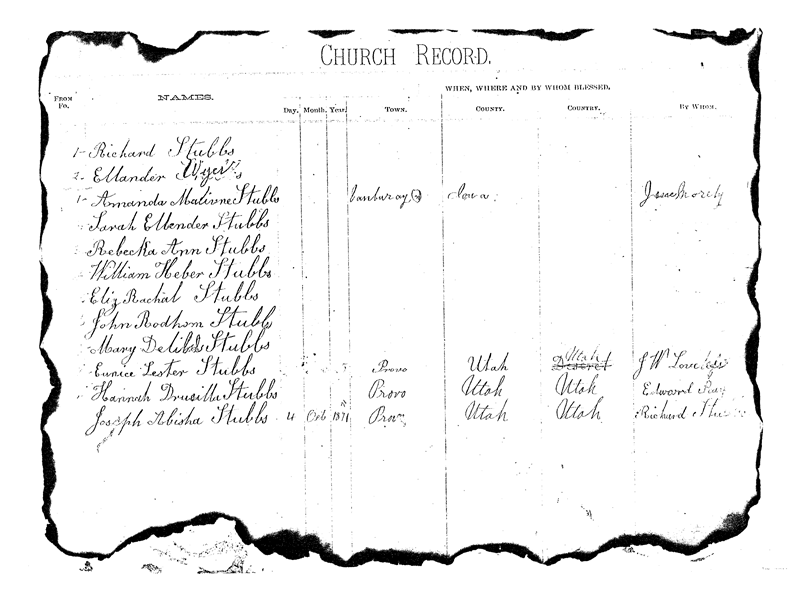 CHURCH RECORD.
WHEN, WHERE AND BY WHOM BLESSED.
FROM FO. NAMES. Day. Month. Year. TOWN. COUNTY. COUNTRY. BY WHOM.
1- Richard Stubbs
2- Ellander
1- Amanda Malivne Stubbs Vanburay Iowa.
Sarah Ellender Stubbs
Rebecka Ann Stubbs
William Heber Stubbs
Eliz Rachal Stubbs
John Rodhom Stubbs
Mary Stubbs
Utah
Eunice Lester Stubbs Provo Utah Deseret J W
Hannah Drusilla Stubbs Provo Utah Utah Edword
Joseph Abisha Stubbs 4 Oct 1871 Utah Utah Richard